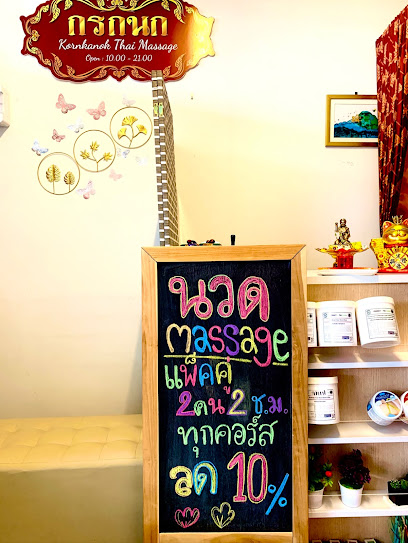 กรกนก
Kornkanok Thai Massage
Open : 10.00 - 21.00
นวด
massage
แพ็คคู่
2คน 2 ช.ม.
ทุกคอร์ส
ลด 10%